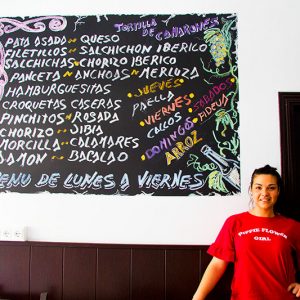 TORTILLA
DE
CAMARONES
PATO ASADO ~ QUESO
FILETILLOS ~ SALCHICHON IBERICO
SALCHICHAS ~ CHORIZO IBERICO
PANCETA ~ ANCHOAS ~ MERLUZA
HAMBURGUESITAS
CROQUETAS CASERAS
PINCHITOS ~ ROSADA
CHORIZO ~ JIBIA
MORCILLA ~ CALAMARES
JAMON ~ BACALAO
JUEVES
PAELLA
VIERNES
CALLOS
DOMINGOS
ARROZ
SABADOS
FIDEUA
MENU DE LUNES A VIERNES
PUPPIE FLOWER
GIRL